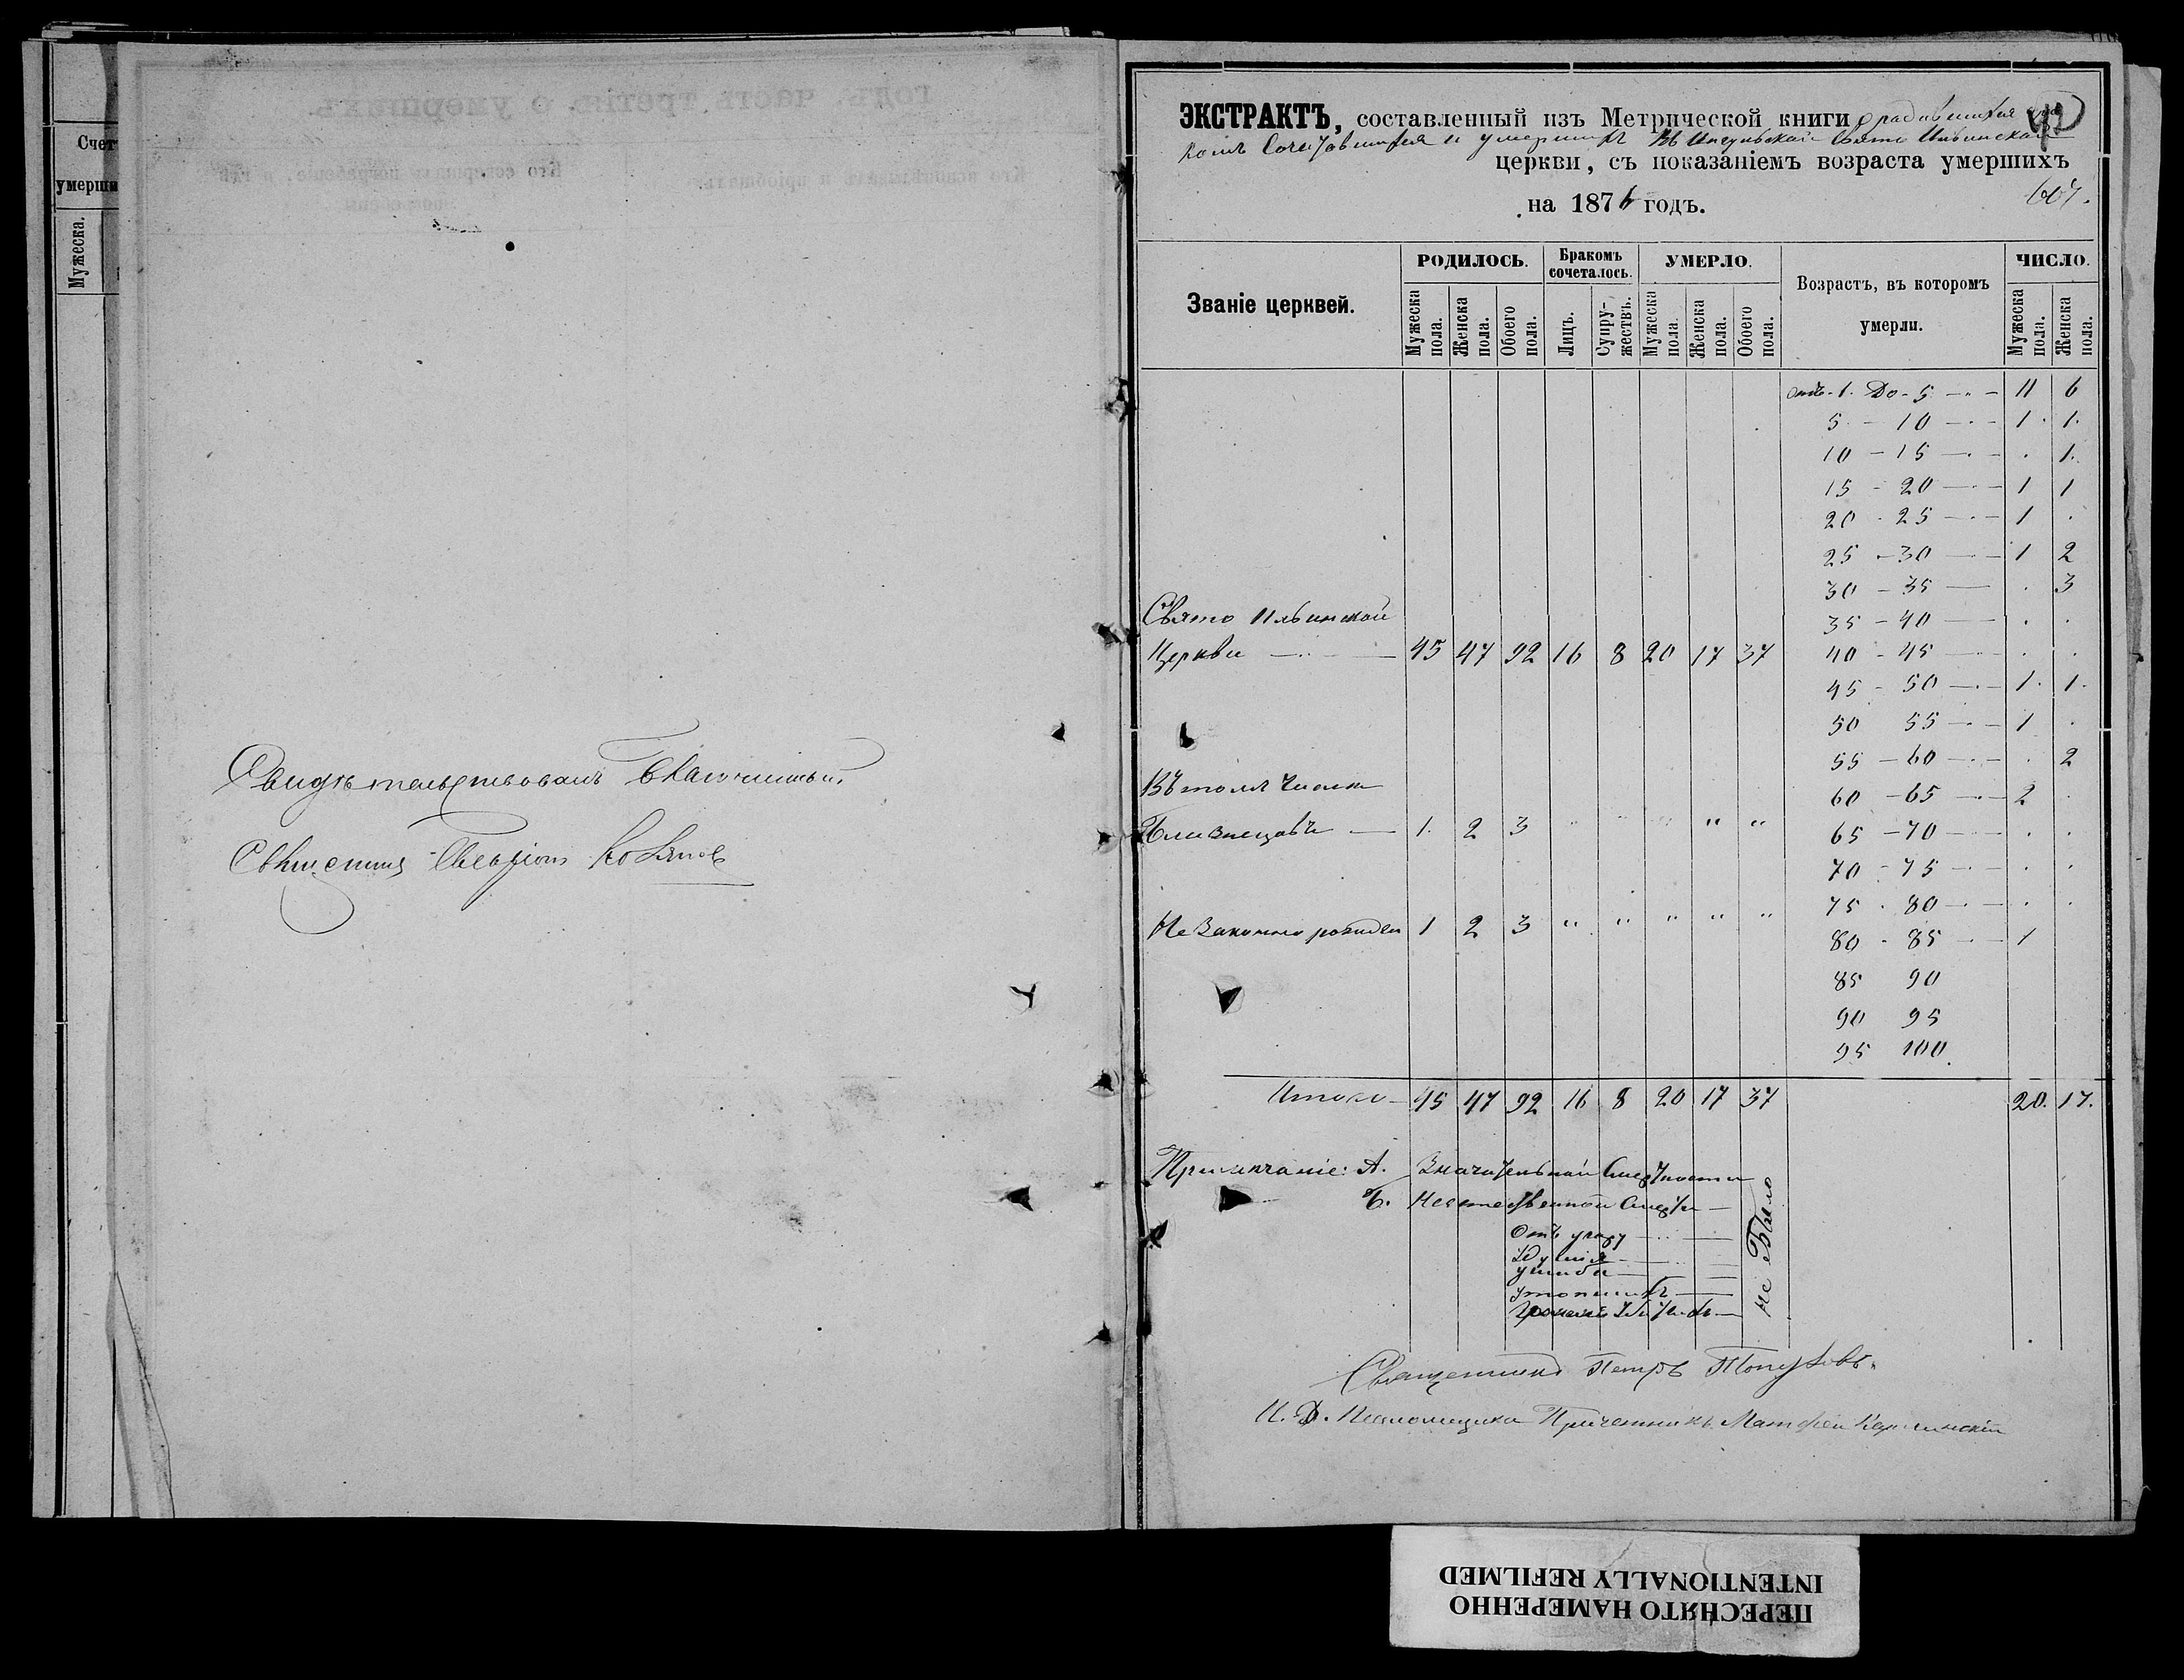 Счет
умерши
Мужеска.
годъ, часть третія, о умершихъ.
Свидѣтельствовалъ Благочинный
Священникъ
ЭКСТРАКТЪ, составленный изъ Метрической книги о родившихся
Сочетавшихся и умершихъ въ Свято Ильинской
церкви, съ показаніемъ возраста умершихъ
на 1876 годъ.
607.
Званіе церквей. РОДИЛОСЬ. Бракомъ сочеталось. УМЕРЛО. Возрастъ, въ которомъ умерли. ЧИСЛО.
Мужеска пола. Женска пола. Обоего пола. Лицъ. Супружествъ. Мужеска пола. Женска пола. Обоего пола. Мужеска пола. Женска пола.
отъ 1. До 5 11 6
5 - 10 1. 1.
10 - 15 . 1.
15 - 20 1 1
20 - 25 1 .
25 - 30 1 2
30 - 35 . 3
Свято Ильинской
35 - 40 . .
Церкви 45 47 92 16 8 20 17 37 40 - 45 . .
45 - 50 1. 1.
50 55 1 .
55 - 60 . 2
Въ томъ числѣ
60 - 65 2 .
Близнецовъ 1. 2 3 " " " " " 65 - 70 . .
70 - 75 . .
75 - 80 . .
Незаконно рожден 1 2 3 " " " " "
80 - 85 1
85 90
90 95
95 100.
Итого 45 47 92 16 8 20 17 37 20. 17.
Примѣчаніе: А. Значительной Смертности
Б. Неестественной Смерти
Отъ угару
удушія
ушиба
утопшихъ
не Было
Священникъ Петръ
И. Д. Псаломщика Причетникъ Матфей
ПЕРЕСНЯТО НАМЕРЕННО
INTENTIONALLY REFILMED